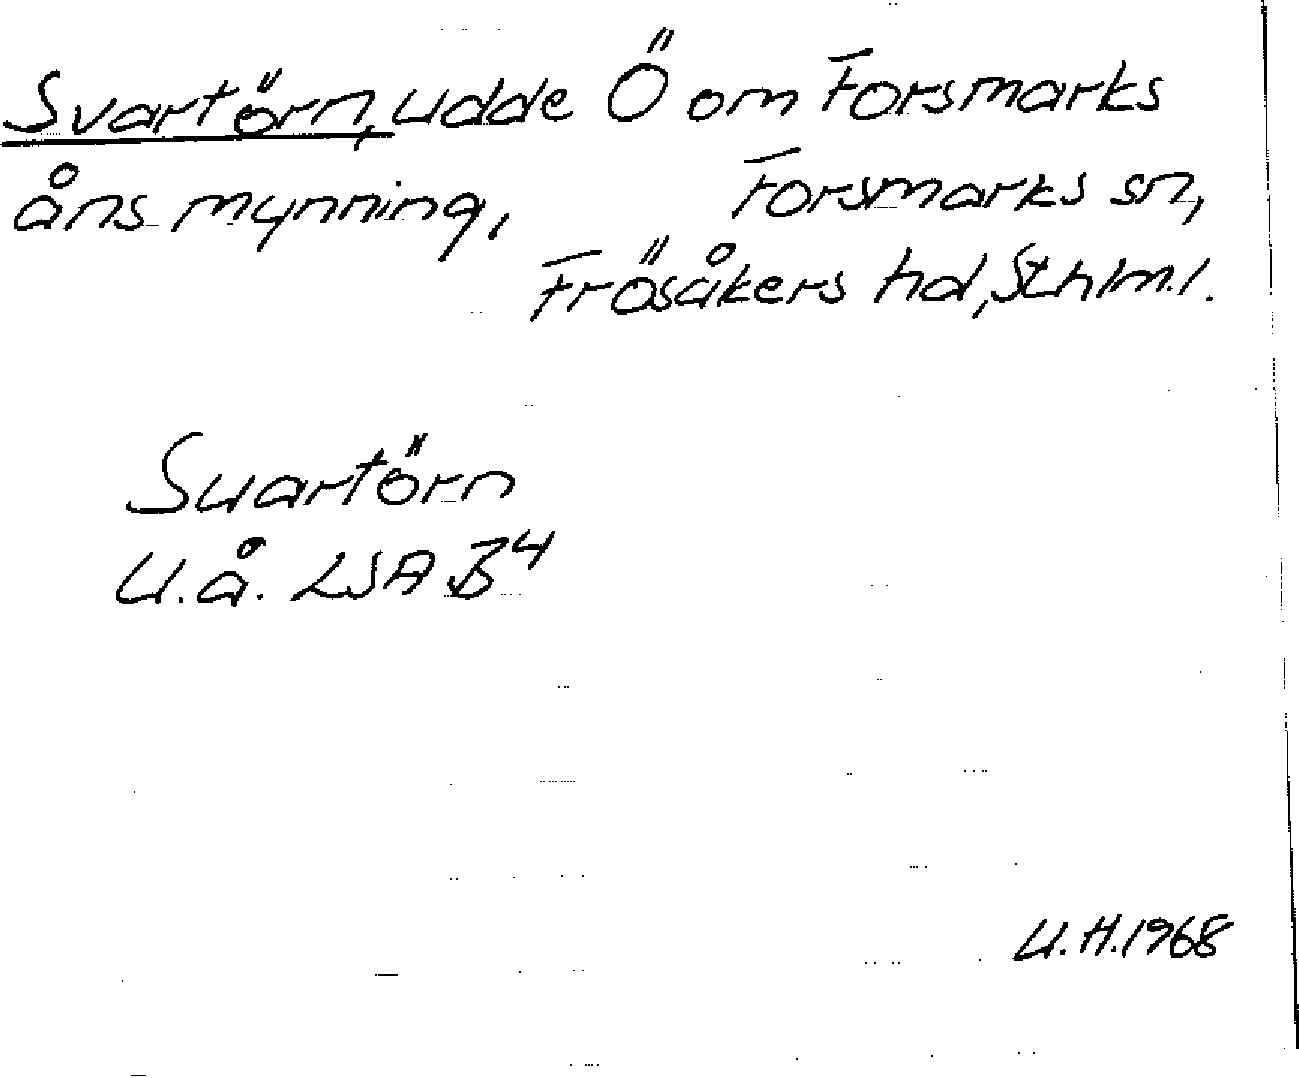 Svartörn, udde Ö om Forsmarks
åns mynning, Forsmarks sn,
Frösåkers hd, Sthlm.l.
Suartörn
U.å. LSA B4
U.H.1968